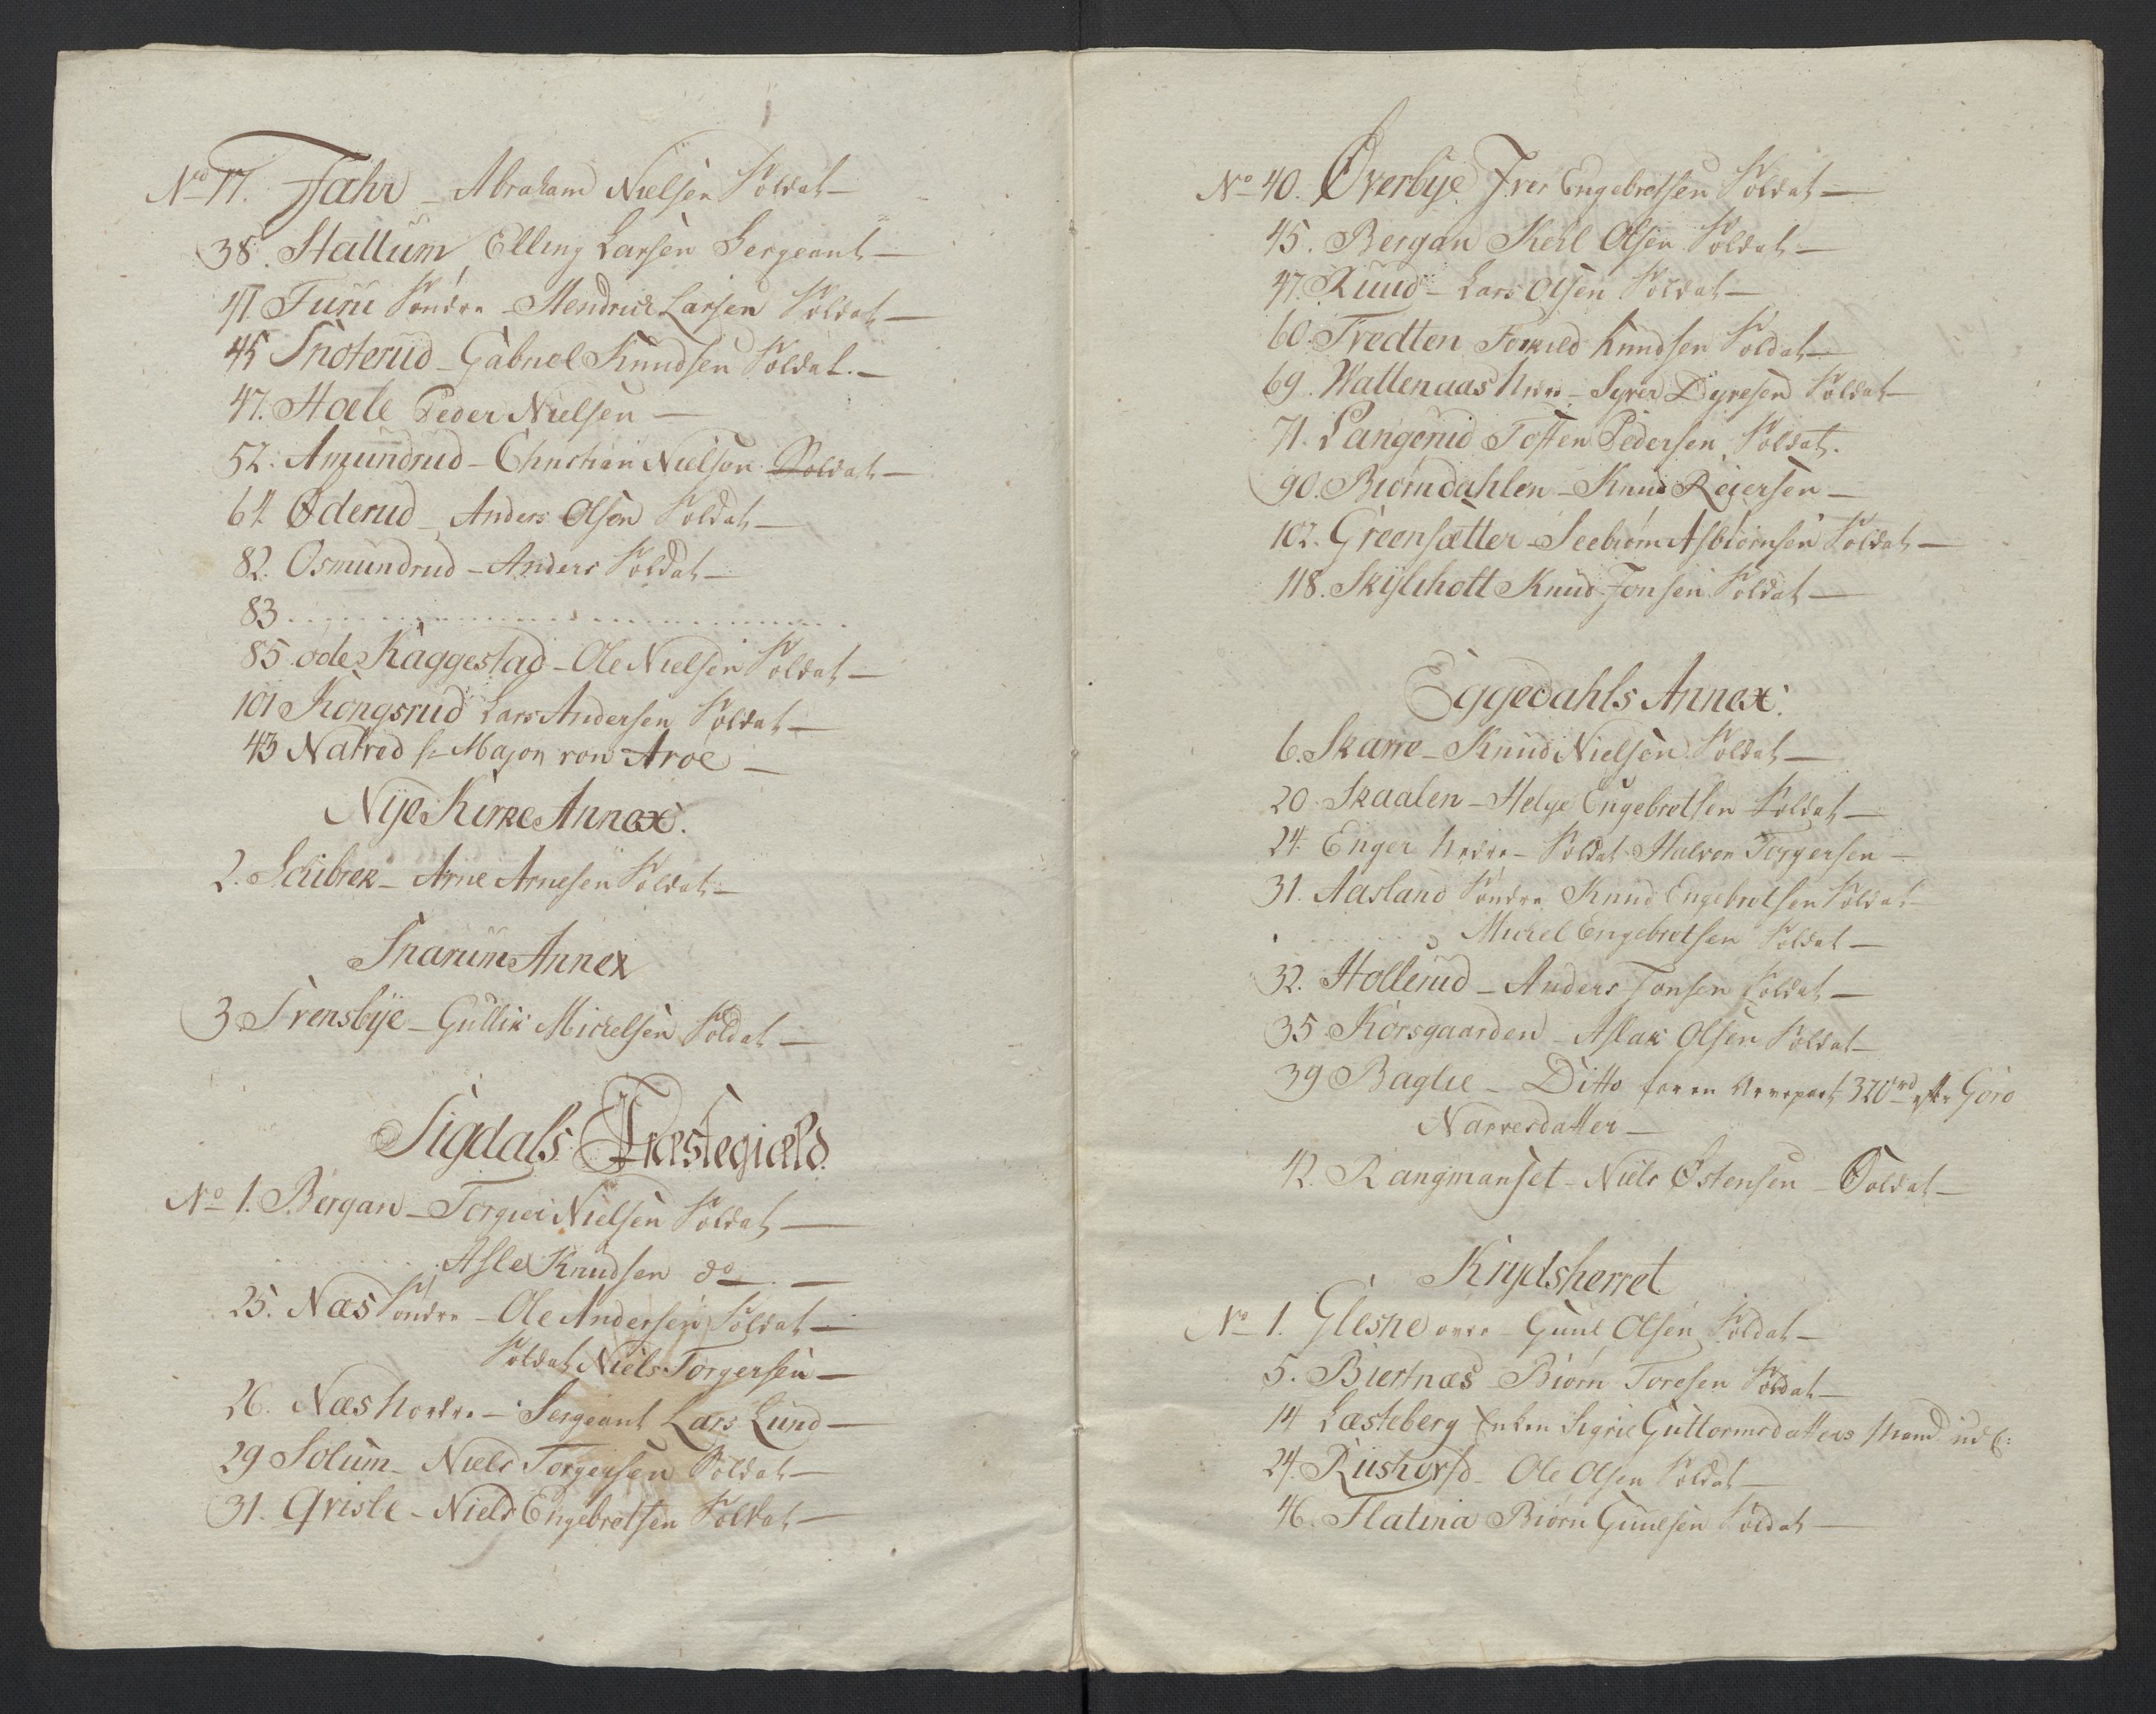 No 17. Fæhr – Abraham Nielsen Soldat –
38. Hallum Elling Larsen Sergeant –
41. Furu Søndre – Hendrick Larsen Soldat –
45 Snoterud – Gabriel Knudsen Soldat. –
47. Hoele Peder Nielsen –
52. Amundrud – Christian Nielsen Soldat –
64 Øderud – Anders Olsen Soldat –
82. Osmundrud – Anders Soldat –
83 . . . . . . . . . . . . . . . . . .
85 øde Kaggestad – Ole Nielsen Soldat –
101 Kongsrud Lars Andersen Soldat –
43 Natred Major von Aroe –
Nye Kirke Annex.
2. Schibrek – Arne Arnesen Soldat –
Snarum Annex
3. Frensbye – Gullik Michelsen Soldat –
Sigdals Præstegiæld.
No 1. Bergan – Torgier Nielsen Soldat –
. . . . . . Asle Knudsen do –
25. Næs Søndre – Ole Andersen Soldat –
Soldat Niels Torgersen –
26. Næs Nordre – Sergeant Lars Lund –
29 Solum – Niels Torgersen Soldat –
31. Qvisle – Niels Engebretsen Soldat –
No 40. Øverbye Iver Engebretsen Soldat –
45. Bergan Ketil Olsen Soldat –
47. Ruud – Lars Olsen Soldat –
60. Tredten Torkild Knudsen Soldat –
69. Wattenaas Nedre – Syver Dyresen Soldat –
71. Langerud Tosten Pedersen Soldat.
90. Biørndahlen – Knud Reiersen –
102. Greensætter – Seebiørn Asbiørnsen Soldat –
118. Skylshott Knud Jonsen Soldat –
Eggedahls Annex.
6. Skarre – Knud Nielsen Soldat –
20. Skaalen – Helge Engebretsen Soldat –
24. Enger Nedre – Soldat Halvor Torgersen –
31. Aasland Søndre Knud Engebretsen Soldat
. . . . . . Michel Engebretsen Soldat –
32. Hollerud – Anders Jonsen Soldat –
35. Korsgaarden – Aslak Olsen Soldat –
39 Baglie – Ditto for en Arvepart 320 rd efter Goro
Narvesdatter –
42. Rangmanset – Niels Østensen – Soldat –
Krydsherret
No 1. Glesne øvre – Guul Olsen Soldat –
5. Biertnæs Biørn Toresen Soldat –
14 Læsteberg Enken Sigrie Guttormsdatters Mand
24. Riishovfd – Ole Olsen Soldat –
46. Flatina Biørn Guulsen Soldat –